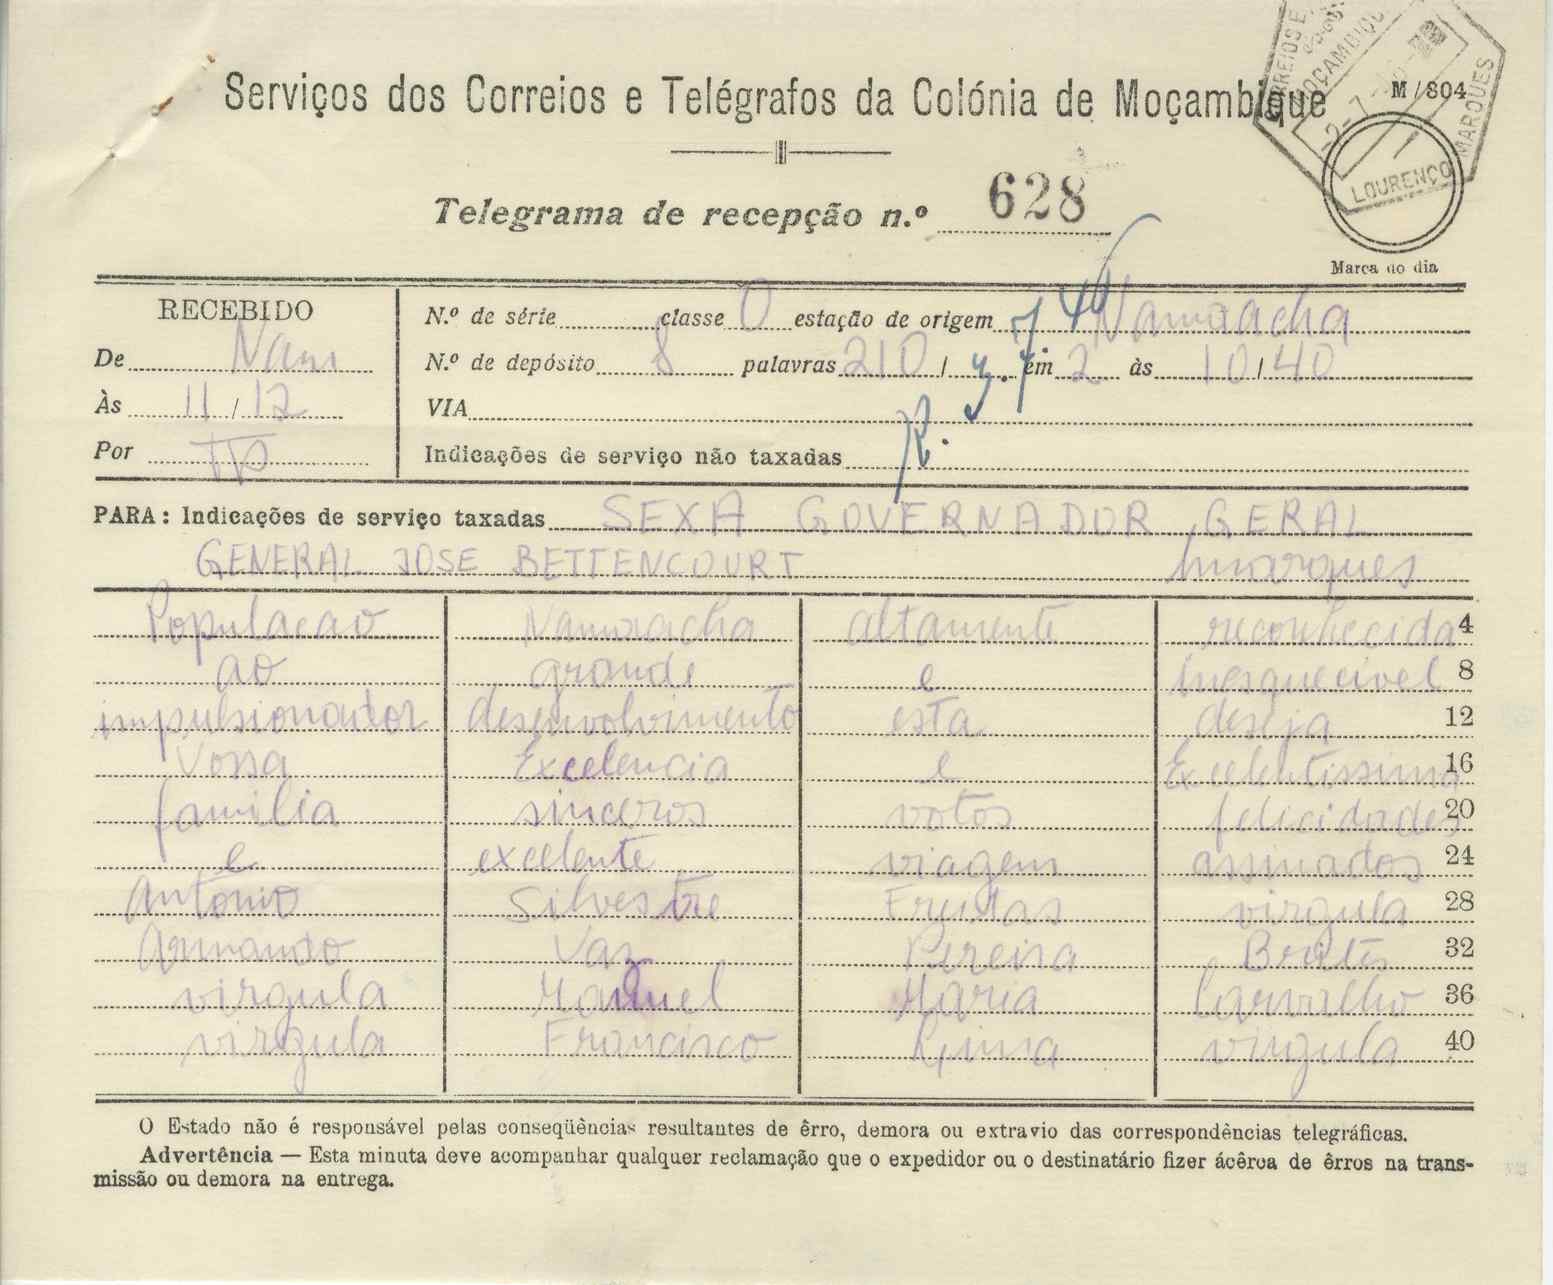 Serviços dos Correios e Telégrafos da Colónia de Moçambique
M/804
MOÇAMBIQUE
LOURENÇO MARQUES
Telegrama de recepção n.º 628
Marca do dia
RECEBIDO
De Nam
Às 11/12
Por
N.º de série classe O estação de origem Namaacha
N.º de depósito 8 palavras 210 / em 2 às 10/40
VIA
Indicações de serviço não taxadas
PARA: Indicações de serviço taxadas SEXA GOVERNADOR GERAL
GENERAL JOSE BETTENCOURT Lmarques
Populacao Namaacha altamente reconhecida 4
ao grande e inesquecivel 8
impulsionador desenvolvimento esta deseja 12
Vossa Excelencia e Excelentissima 16
familia sinceros votos felicidades 20
e excelente viagem assinados 24
Antonio Silvestre Freitas virgula 28
Armando Vaz Pereira Brites 32
virgula Manuel Maria Carvalho 36
virgula Francisco Lima virgula 40
O Estado não é responsável pelas conseqüências resultantes de êrro, demora ou extravio das correspondências telegráficas.
Advertência — Esta minuta deve acompanhar qualquer reclamação que o expedidor ou o destinatário fizer ácêrca de êrros na trans-
missão ou demora na entrega.